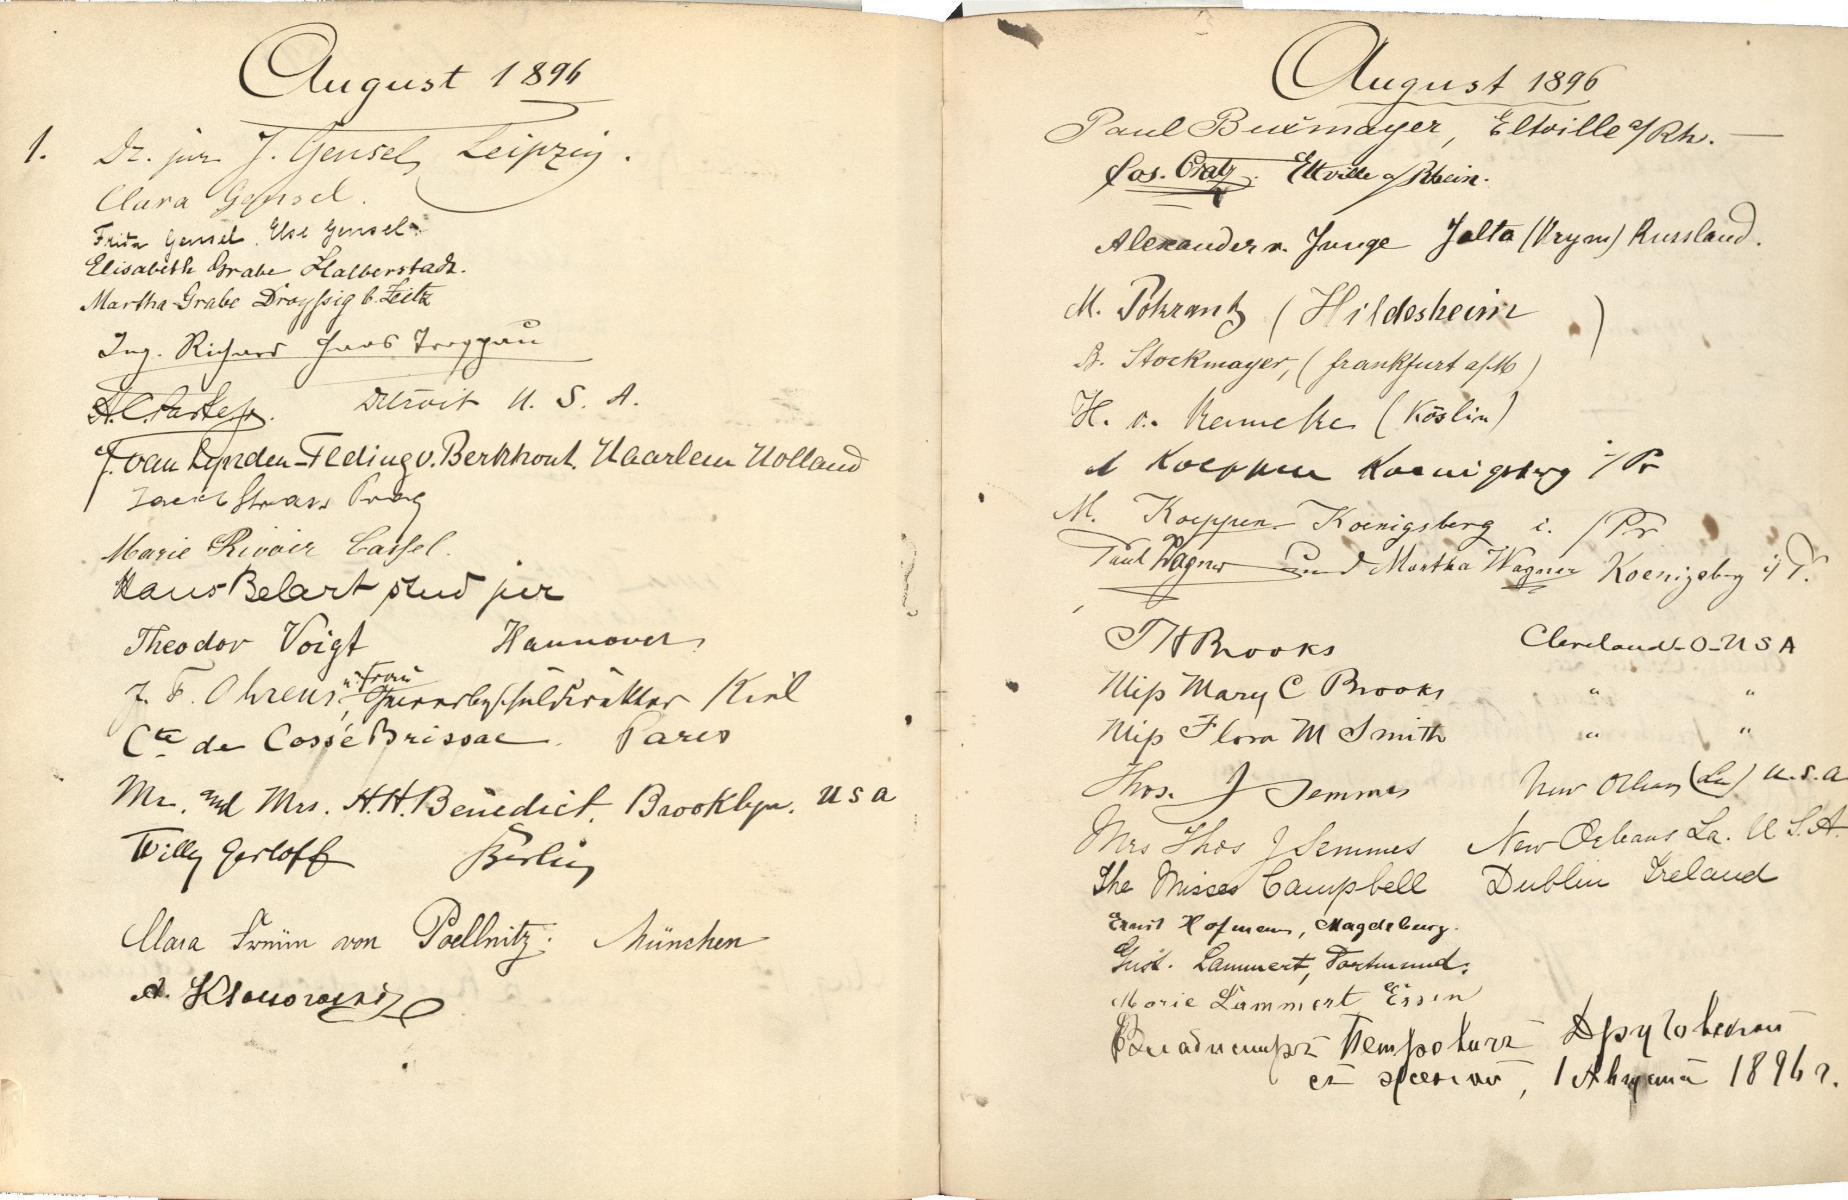 August 1896
1. Dr. jur J. Gensel, Leipzig.
Clara Gensel.
Frida Gensel. Else Gensel
Elisabeth Grabe Halberstadt.
Martha Grabe Droyßig b. Zeitz
Ing. Richard Troppau
Detroit U. S. A.
J. van Lynden-Teding v. Berkhout. Haarlem Holland
Strass Prag
Marie Rivoir Cassel.
Hans Belart stud jur
Theodor Voigt Hannover
J. F. Ahrens, u. Frau Kiel
Cte de Cossé Brissac. Paris
Mr. and Mrs. H. H. Benedict. Brooklyn. U S A
Willy Gerloff Berlin
Clara von Poellnitz. München
A.
August 1896
Paul Buxmayer, Eltville a/Rh. —
Jos. Eltville a/Rhein.
Alexander v. Junge Jalta (Krym) Russland.
M. Pokrantz (Hildesheim)
Stockmayer, (Frankfurt a/M)
H. v. (Köslin)
A Koeppen Koenigsberg i/Pr
M. Koeppen Koenigsberg i. /Pr
Paul Wagner und Martha Wagner Koenigsberg i/P.
T H Brooks Cleveland-O-U S A
Miss Mary C Brooks " "
Miss Flora M Smith " "
Thos. J Semmes New Orleans (La) U.S.A
Mrs Thos J Semmes New Orleans La. U.S.A.
The Misses Campbell Dublin Ireland
Ernst Hofmann, Magdeburg.
Gust. Lammert, Dortmund.
Marie Lammert Essen
Владимиръ Петровичъ
съ женою, 1 Августа 1896 г.